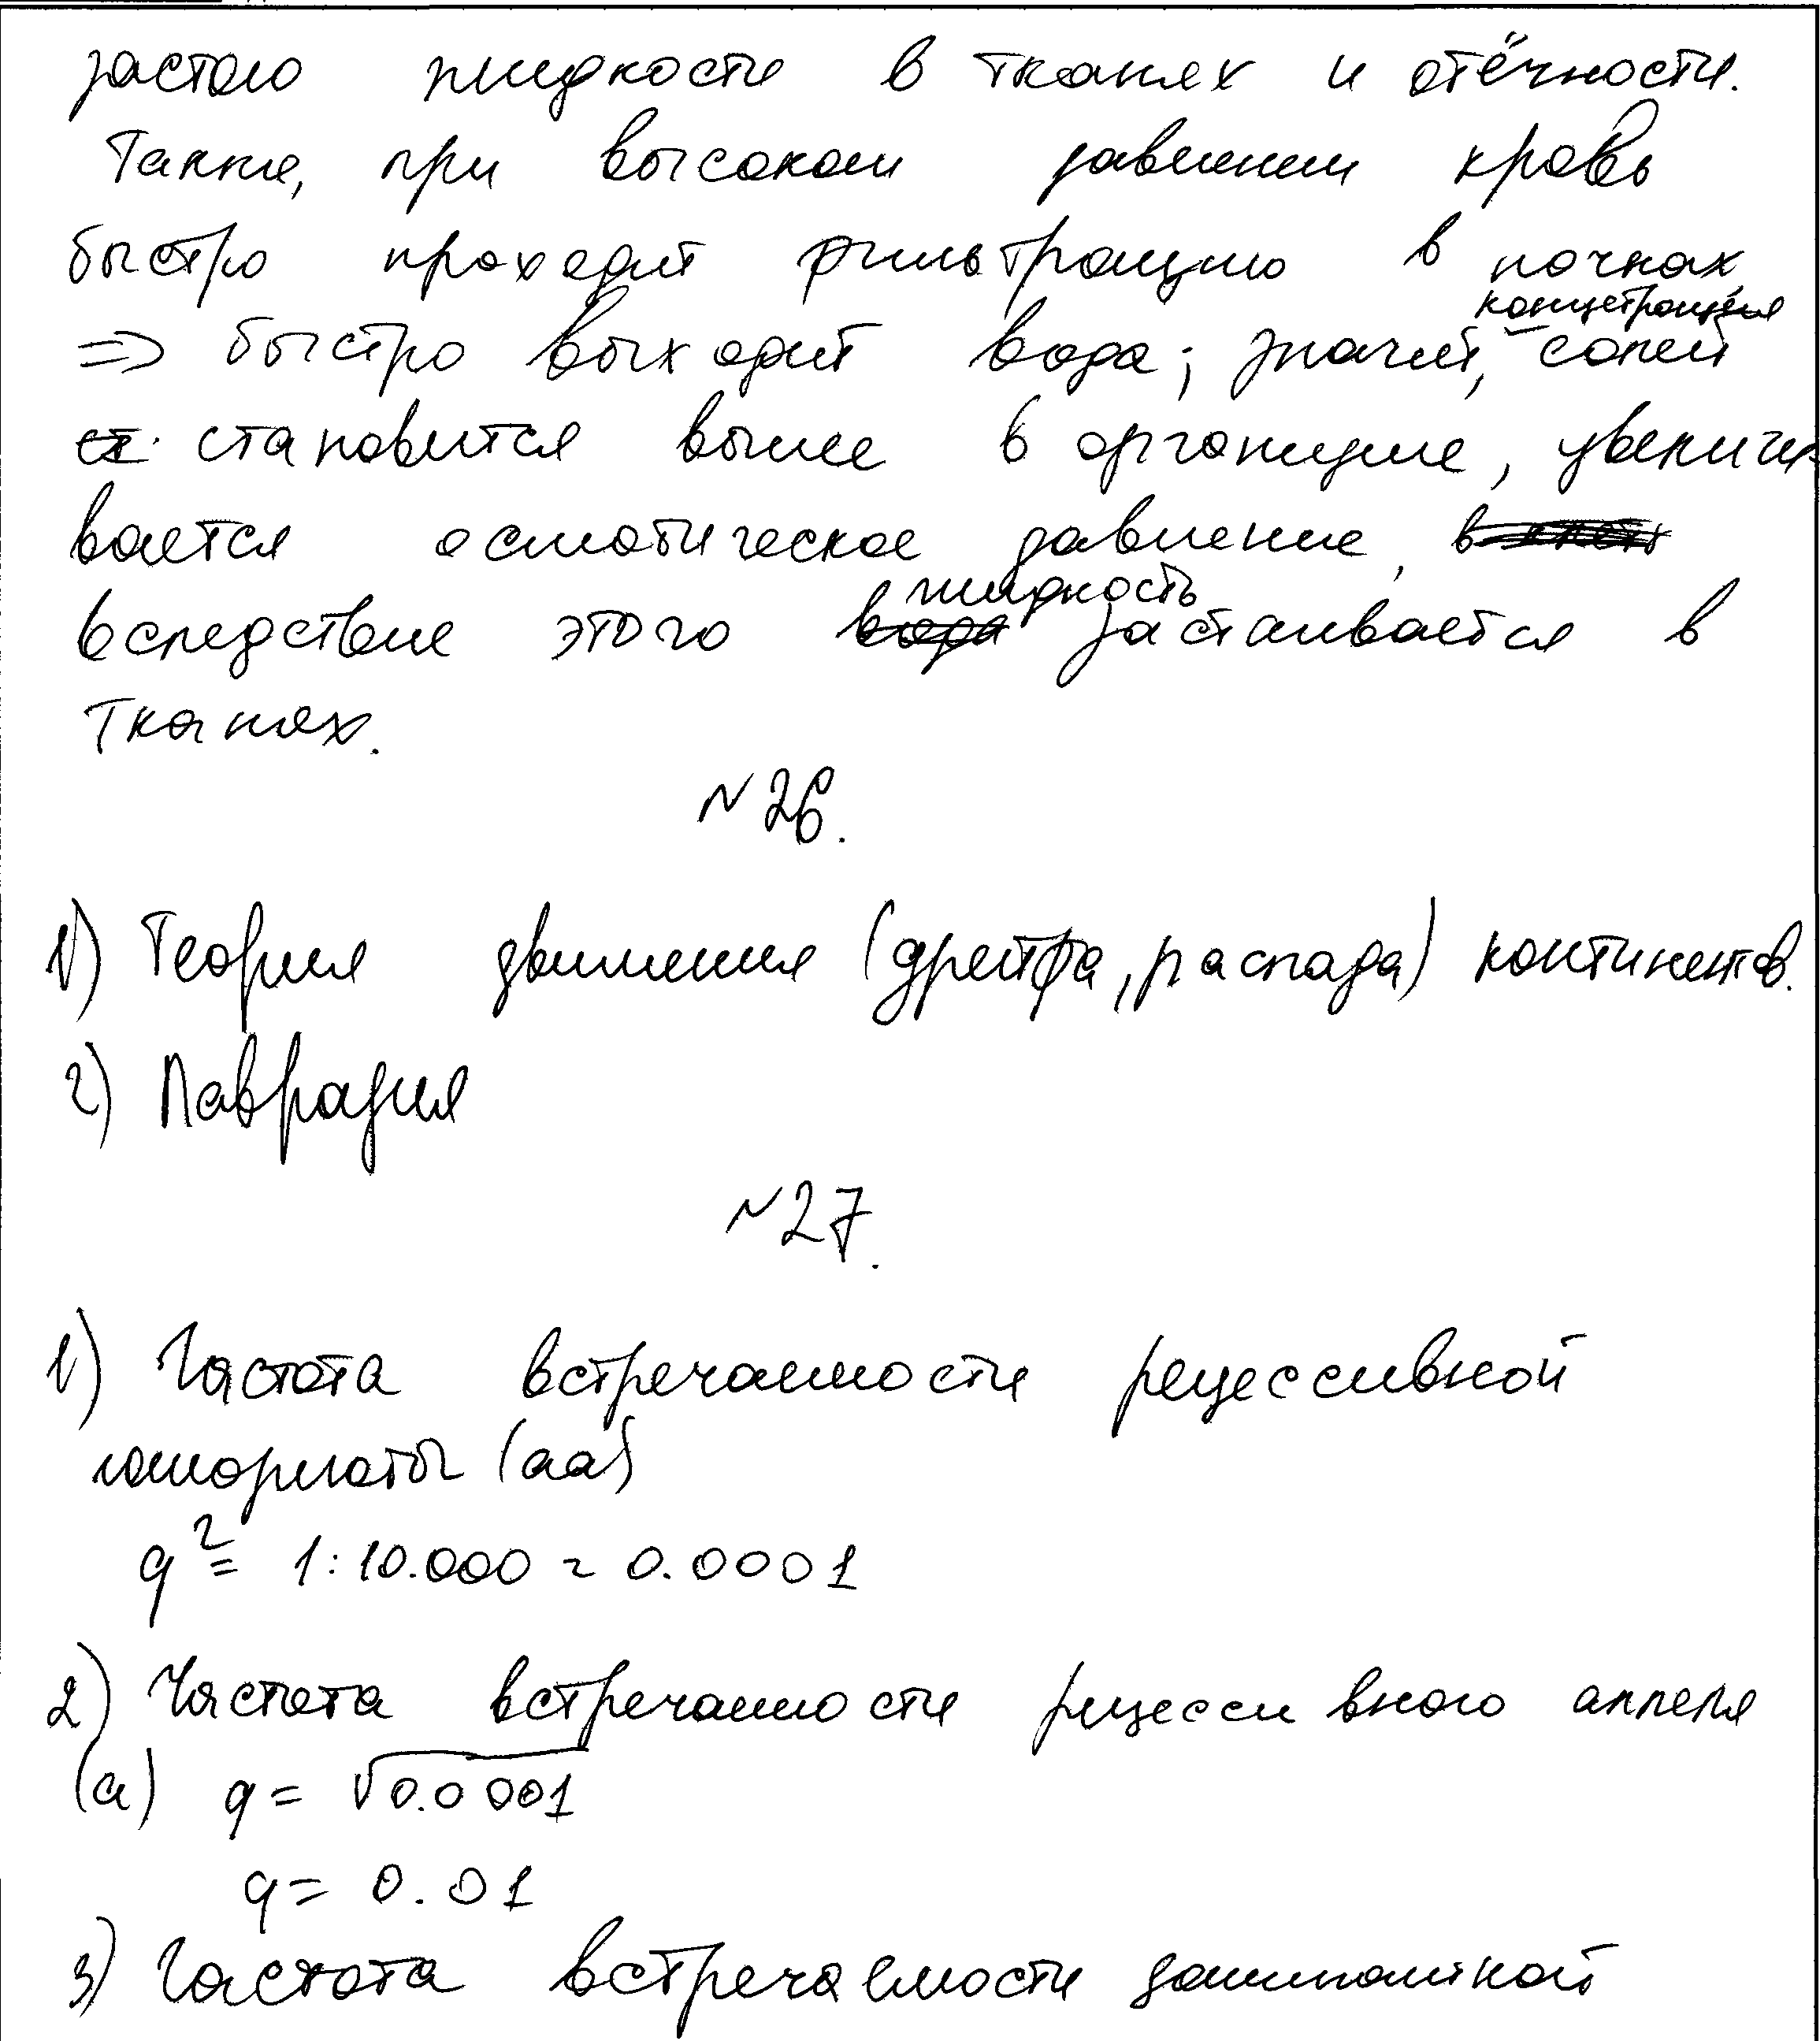 застою жидкости в тканях и отёчности.
Также, при высоком давлении кровь
быстро проходит фильтрацию в почках
=> быстро выходит вода; значит, концетрация солей
ст. становится выше в организме, увеличи
вается осмотическое давление,
вследствие этого вода жидкость застаивается в
тканях.
№26.
1) Теория движения (дрейфа, распада) континентов.
2) Лавразия
№27.
1) Частота встречаемости рецессивной
гомозиготы (aa)
q² = 1:10.000 = 0.0001
2) Частота встречаемости рецессивного аллеля
(a) q = √0.0001
q = 0.01
3) Частота встречаемости доминантной